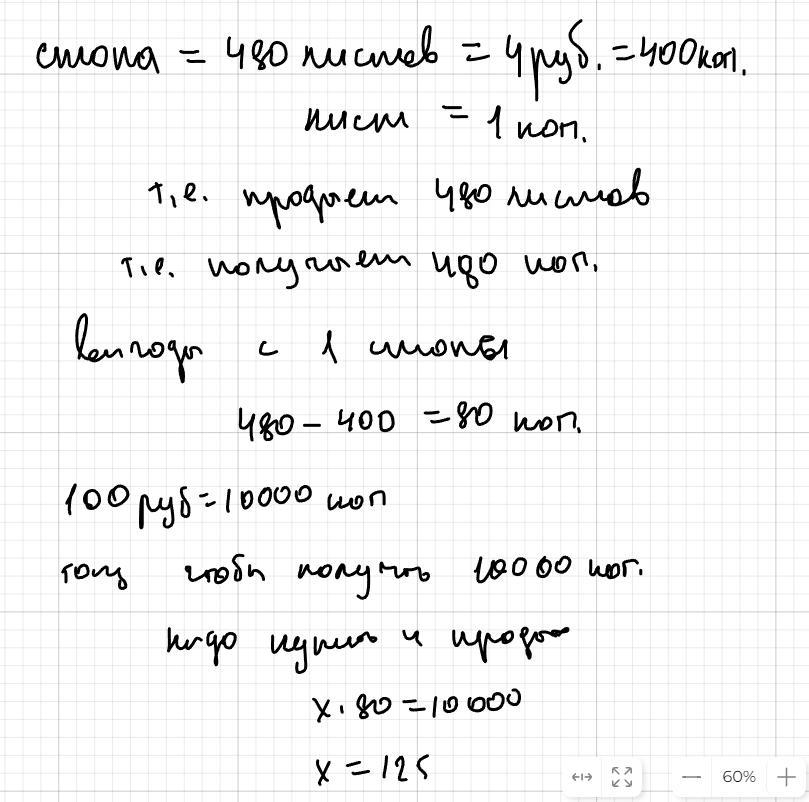 стопа = 480 листов = 4 руб. = 400 коп.
лист = 1 коп.
т.е. продает 480 листов
т.е. получает 480 коп.
выгода с 1 стопы
480 - 400 = 80 коп.
100 руб = 10000 коп
чтобы получить 10000 коп.
надо купить и продать
x · 80 = 10000
x = 125
60%